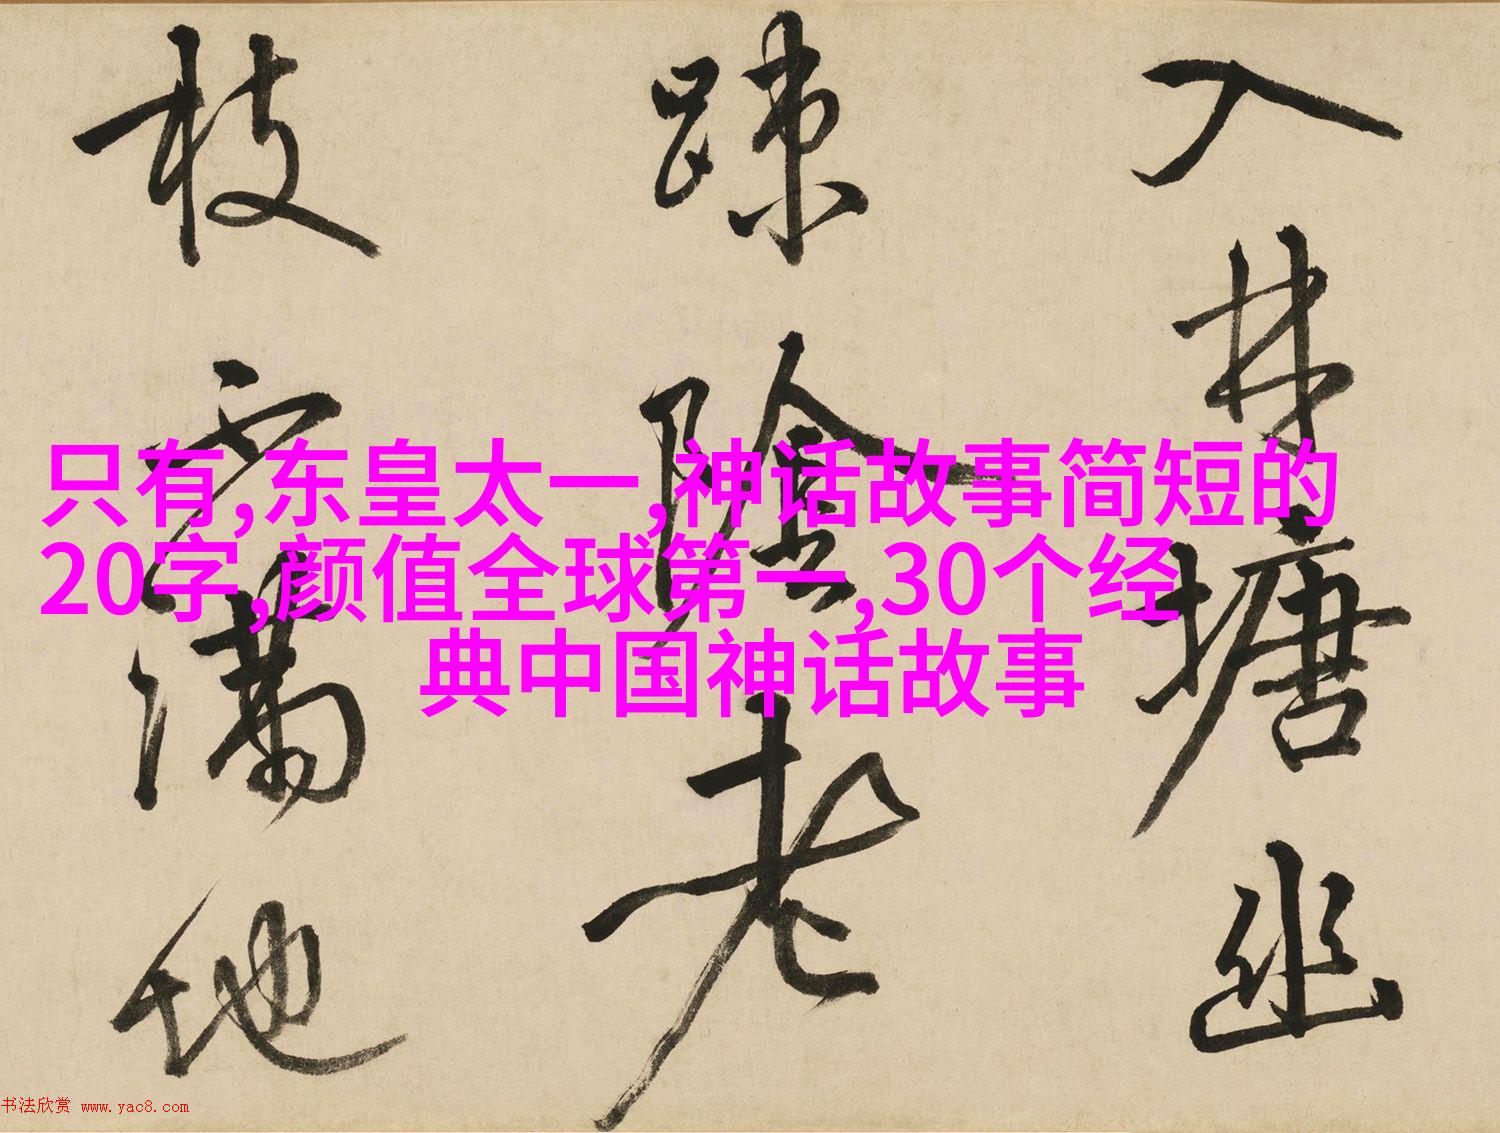 只有,东皇太一,神话故事简短的
20字,颜值全球第一,30个经
典中国神话故事
入林塘幽
疎阴老
枝满地
书法欣赏 www.yac8.com